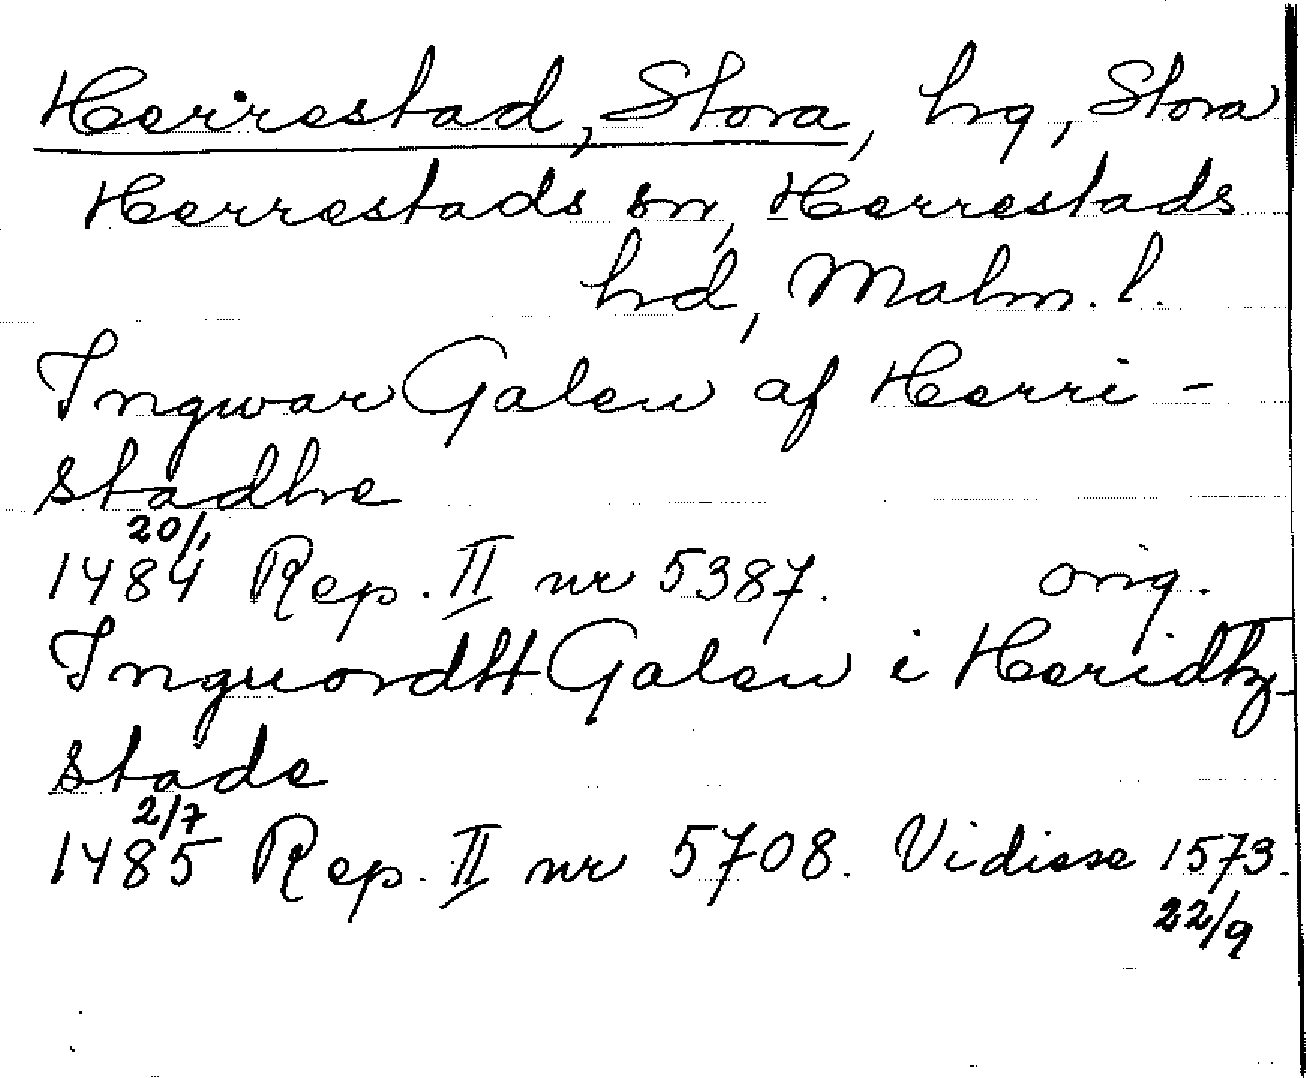 Herrestad, Stora, hrg, Stora
Herrestads sn, Herrestads
hd, Malm. l.
Ingwar Galen af Herri-
stadhe
20/1
1484 Rep. II nr 5387. orig.
Inguordtt Galen i Heridtz-
stade
2/7
1485 Rep. II nr 5708. Vidisse 1573.
22/9